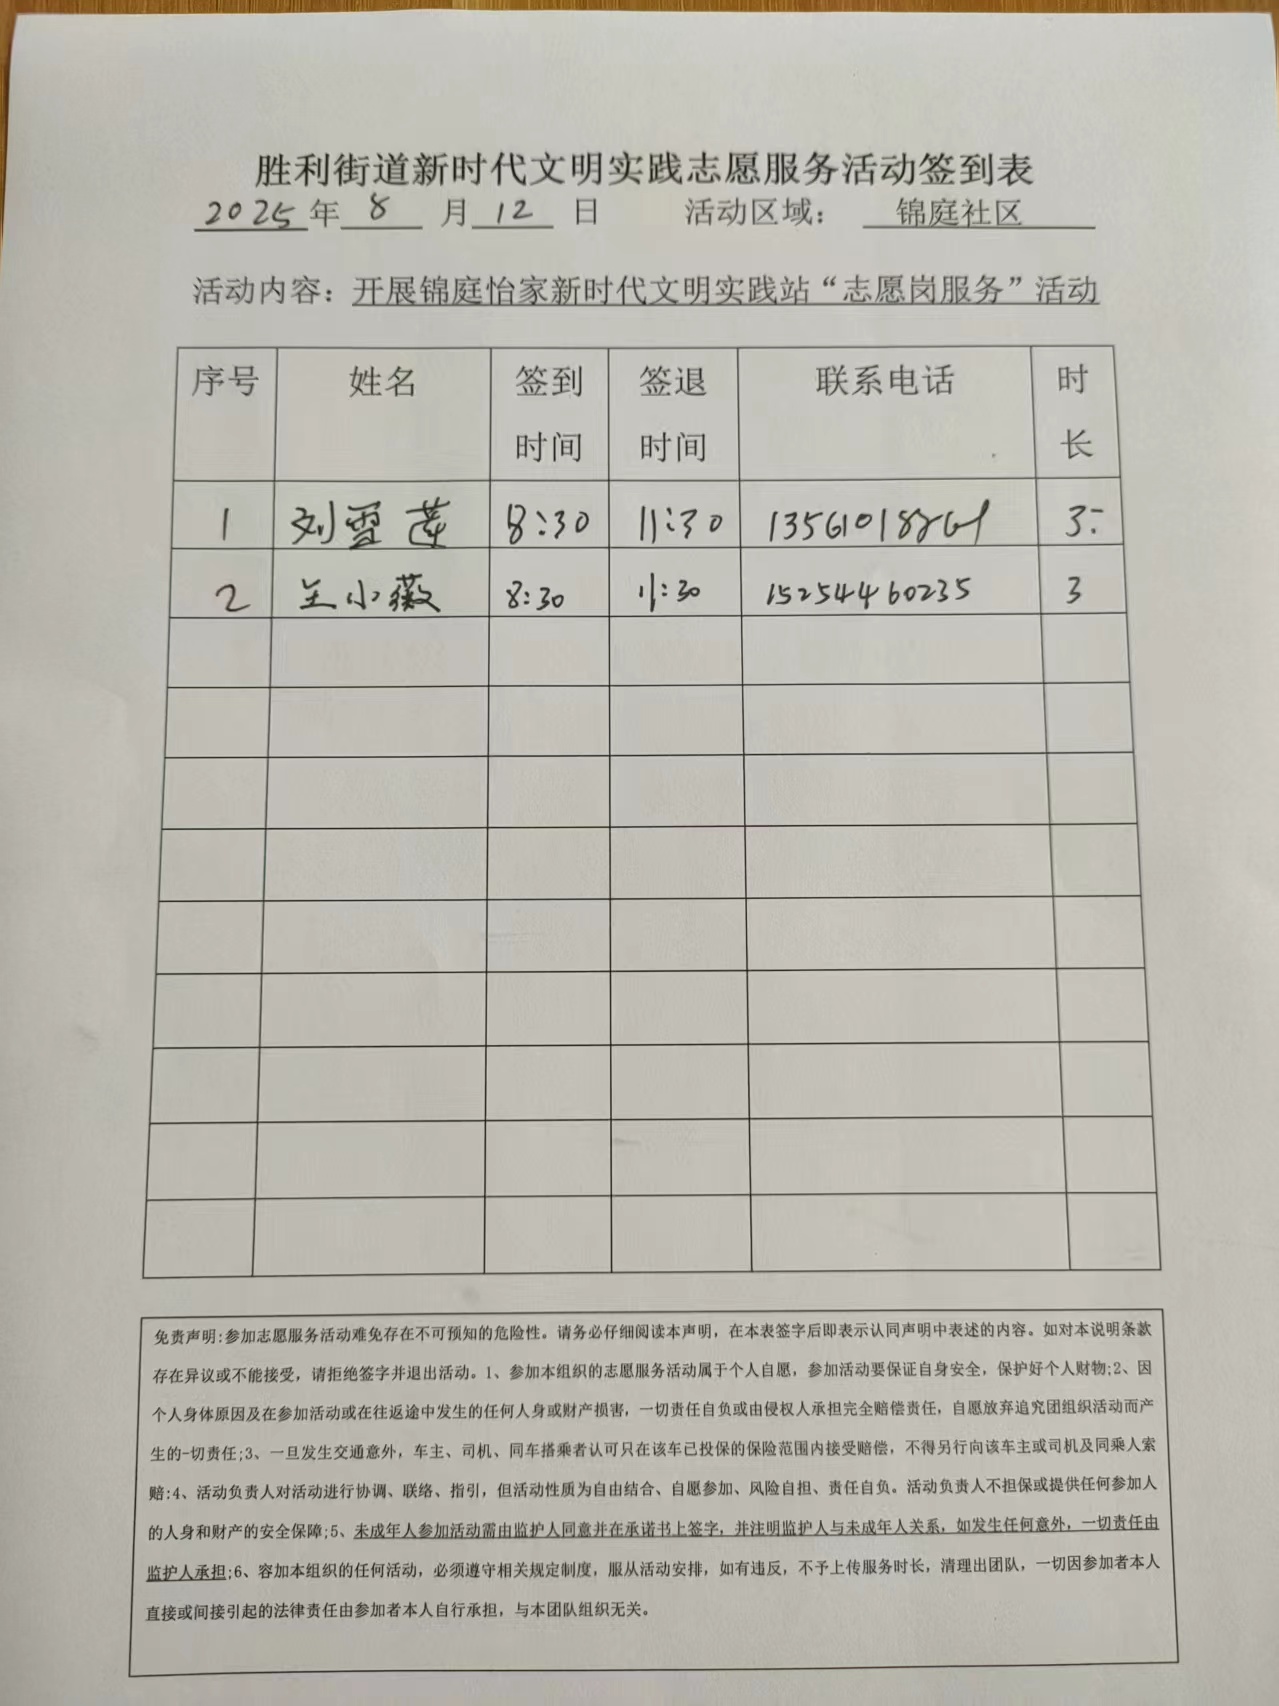 胜利街道新时代文明实践志愿服务活动签到表
2025 年 8 月 12 日 活动区域： 锦庭社区
活动内容：开展锦庭怡家新时代文明实践站“志愿岗服务”活动
序号 姓名 签到时间 签退时间 联系电话 时长
1 刘雪莲 8:30 11:30 3
2 王小薇 8:30 11:30 15254460235 3
免责声明:参加志愿服务活动难免存在不可预知的危险性。请务必仔细阅读本声明，在本表签字后即表示认同声明中表述的内容。如对本说明条款
存在异议或不能接受，请拒绝签字并退出活动。1、参加本组织的志愿服务活动属于个人自愿，参加活动要保证自身安全，保护好个人财物;2、因
个人身体原因及在参加活动或在往返途中发生的任何人身或财产损害，一切责任自负或由侵权人承担完全赔偿责任，自愿放弃追究团组织活动而产
生的-切责任;3、一旦发生交通意外，车主、司机、同车搭乘者认可只在该车已投保的保险范围内接受赔偿，不得另行向该车主或司机及同乘人索
赔:4、活动负责人对活动进行协调、联络、指引，但活动性质为自由结合、自愿参加、风险自担、责任自负。活动负责人不担保或提供任何参加人
的人身和财产的安全保障;5、未成年人参加活动需由监护人同意并在承诺书上签字，并注明监护人与未成年人关系，如发生任何意外，一切责任由
监护人承担;6、容加本组织的任何活动，必须遵守相关规定制度，服从活动安排，如有违反，不予上传服务时长，清理出团队，一切因参加者本人
直接或间接引起的法律责任由参加者本人自行承担，与本团队组织无关。